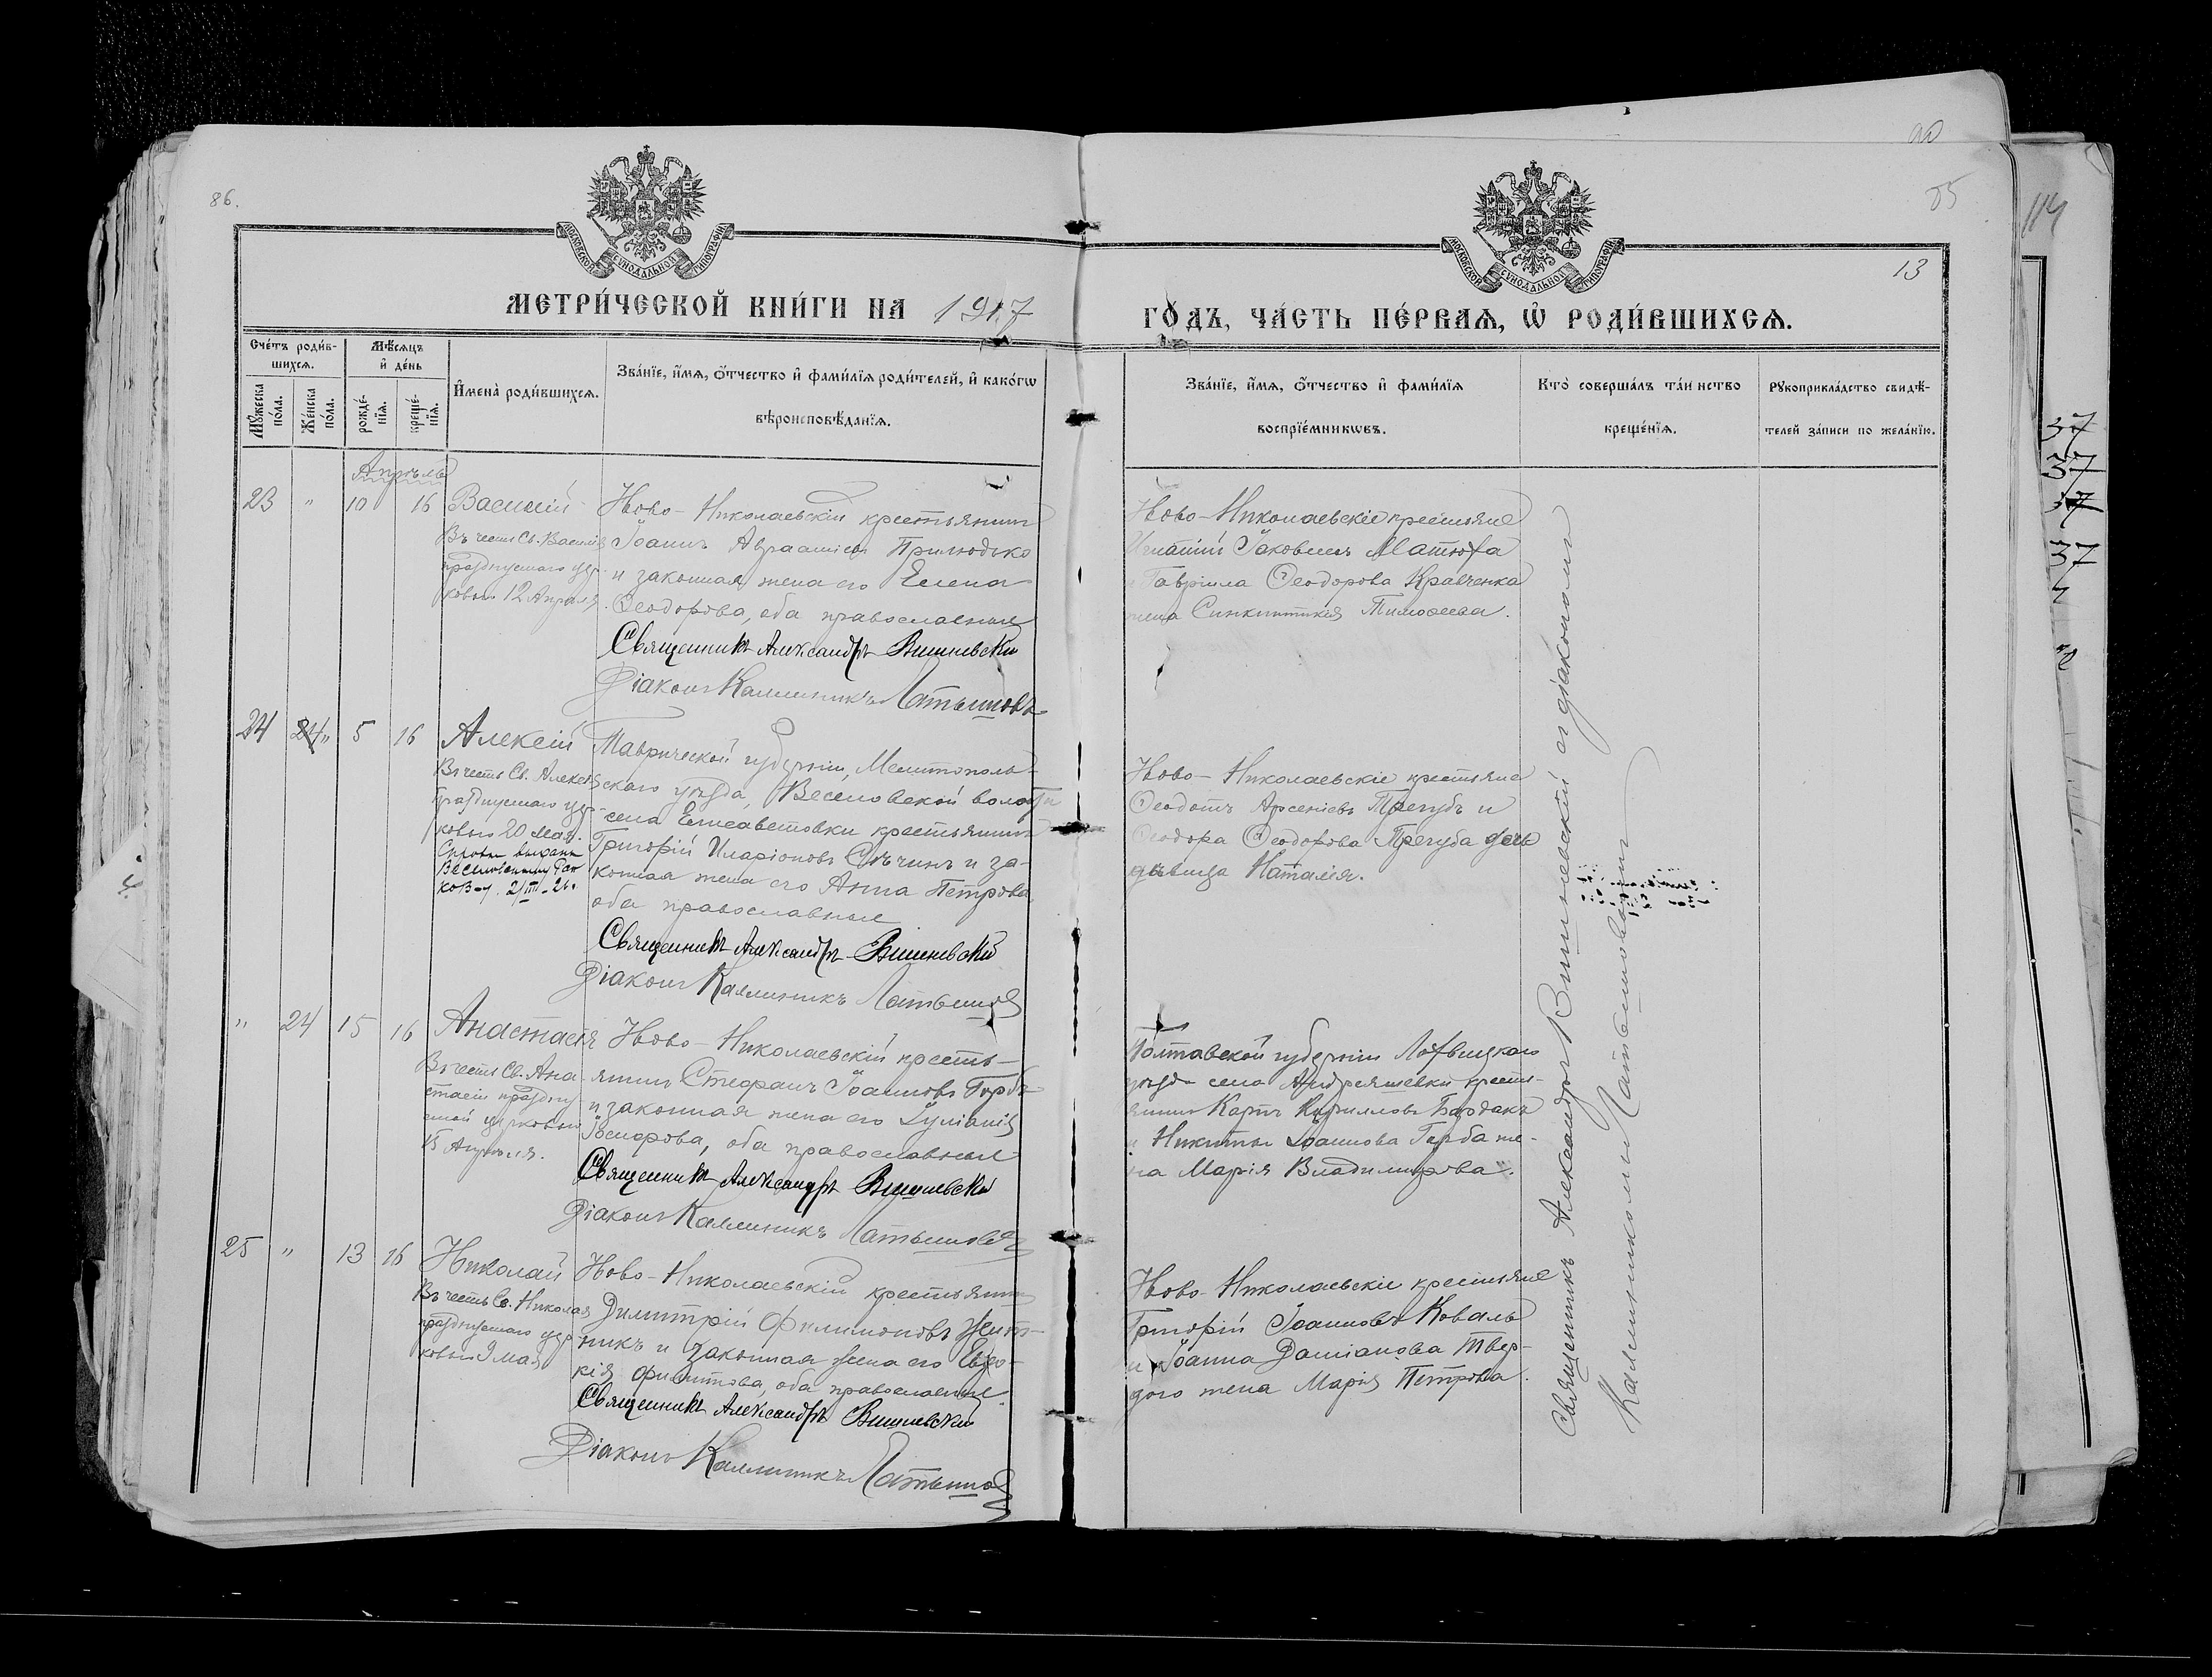 86.
90
85
114
13
МОСКОВСКОЙ СѴНОДАЛЬНОЙ ТИПОГРАФІИ
МОСКОВСКОЙ СѴНОДАЛЬНОЙ ТИПОГРАФІИ
МЕТРИ́ЧЕСКОЙ КНИ́ГИ НА 1917
ГО́ДЪ, ЧА́СТЬ ПЕ́РВАѦ, Ѡ҆ РОДИ́ВШИХСѦ.
Сче́тъ роди́в-
шихсѧ.
Мꙋ́жеска
по́ла.
Же́нска
по́ла.
Мѣ́сѧцъ
и҆ де́нь
рожде́-
нїѧ.
креще́-
нїѧ.
И҆мена̀ роди́вшихсѧ.
Зва́нїе, и҆́мѧ, ѻ҆́тчество и҆ фами́лїѧ роди́телей, и҆ како́гѡ
вѣроисповѣ́данїѧ.
Зва́нїе, и҆́мѧ, ѻ҆́тчество и҆ фами́лїѧ
воспрїе́мникѡвъ.
Кто̀ соверша́лъ та́инство
креще́нїѧ.
Рꙋкоприкла́дство свидѣ́-
телей за́писи по жела́нїю.
Апрѣль
23 " 10 16 Василій
Въ честь Св. Василія
празднуемаго цер-
ковью 12 Апрѣля.
Ново-Николаевскій крестьянинъ
Іоаннъ Авраамiевъ Прилюдько
и законная жена его Елена
Ѳеодорова, оба православные
Священникъ Александръ Вишневскій
Діаконъ Каллиникъ Латышовъ
Ново-Николаевскіе крестьяне
Игнатій Іаковлевъ Матюха
и Гавріила Ѳеодорова Кравченка
жена Синклитикія Тимоѳеева.
24 24 " 5 16 Алексій
Въ честь Св. Алексія
празднуемаго цер-
ковью 20 мая.
2/III-26.
Таврической губерніи, Мелитополь-
скаго уѣзда, Веселовской волости
села Елисаветовки крестьянинъ
Григорій Иларіоновъ Сѣчинъ и за-
конная жена его Анна Петрова
оба православные
Священникъ Александръ Вишневскій
Діаконъ Каллиникъ Латышовъ
Ново-Николаевскіе крестьяне
Ѳеодотъ Арсеніевъ Трегубъ и
Ѳеодора Ѳеодорова Трегуба дочь
дѣвица Наталія.
" 24 15 16 Анастасія
Въ честь Св. Ана-
стасіи праздну-
емой церковью
15 Апрѣля.
Ново-Николаевскій кресть-
янинъ Стефанъ Іоанновъ Горбъ
и законная жена его Іуліанія
Іосифова, оба православные
Священникъ Александръ Вишневскій
Діаконъ Каллиникъ Латышовъ
Полтавской губерніи Лохвицкаго
уѣзда села Андреяшевки кресть-
янинъ Карпъ Кирилловъ Бардакъ
и Никиты Іоаннова Горба же-
на Марія Владимирова.
25 " 13 16 Николай
Въ честь Св. Николая
празднуемаго цер-
ковью 9 мая
Ново-Николаевскій крестьянинъ
Димитрій Филимоновъ Жит-
никъ и законная жена его Евдо-
кія Филиппова, оба православные.
Священникъ Александръ Вишневскій
Діаконъ Каллиникъ Латышовъ
Ново-Николаевскіе крестьяне
Григорій Іоанновъ Коваль
и Іоанна Даміанова Твер-
дого жена Марія Петрова.
Священникъ Александръ Вишневскій съ діакономъ
Каллиникомъ Латышовымъ
37
37
37
37